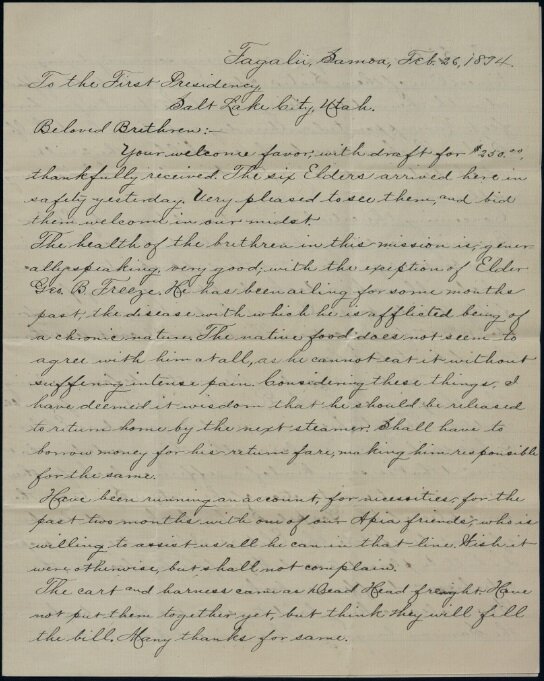 Fagalii, Samoa, Feb. 26, 1894.
To the First Presidency
Salt Lake City, Utah.
Beloved Brethren:-
Your welcome favor, with draft for $250.00,
thankfully received. The six Elders arrived here in
safety yesterday. Very pleased to see them, and bid
them welcome in our midst.
The health of the brethren in this mission is, gener
ally speaking, very good; with the exeption of Elder
Geo. B. Freeze. He has been ailing for some months
past, the disease with which he is afflicted being of
a chronic nature. The native food does not seem to
agree with him at all, as he cannot eat it without
suffering intense pain. Considering these things, I
have deemed it wisdom that he should be released
to return home by the next steamer. Shall have to
borrow money for his return fare, making him responsible
for the same.
Have been running an account, for necessities, for the
past two months with one of our Apia friends, who is
willing to assist us all he can in that line. Wish it
were otherwise, but shall not complain.
The cart and harness came as Dead Head freight. Have
not put them together yet, but think they will fill
the bill. Many thanks for same.